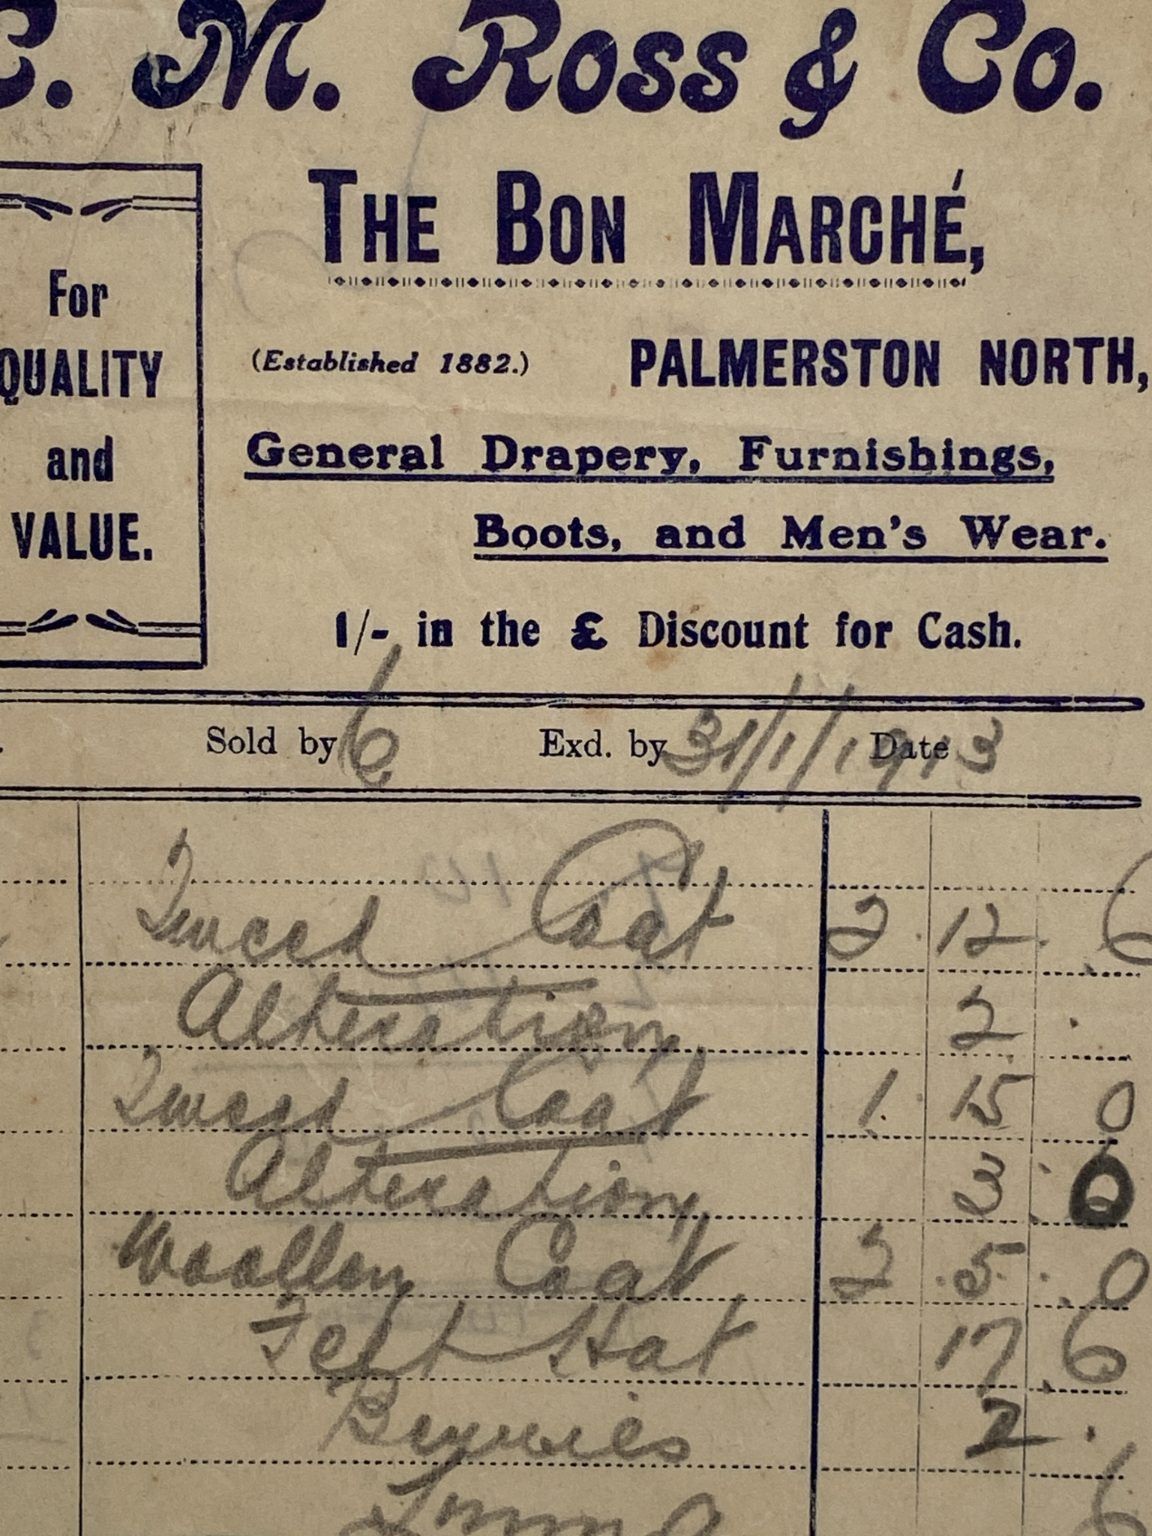 C. M. Ross & Co.
THE BON MARCHÉ,
For
QUALITY
and
VALUE.
(Established 1882.) PALMERSTON NORTH,
General Drapery, Furnishings,
Boots, and Men's Wear.
1/- in the £ Discount for Cash.
Sold by 6 Exd. by Date 31/1/1913
Tweed Coat 2 . 12 . 6
Alteration 2 .
Tweed Coat 1 . 15 0
Alteration 3 . 6
Woollen Coat 2 . 5 . 0
Felt Hat 17 . 6
2 .
6